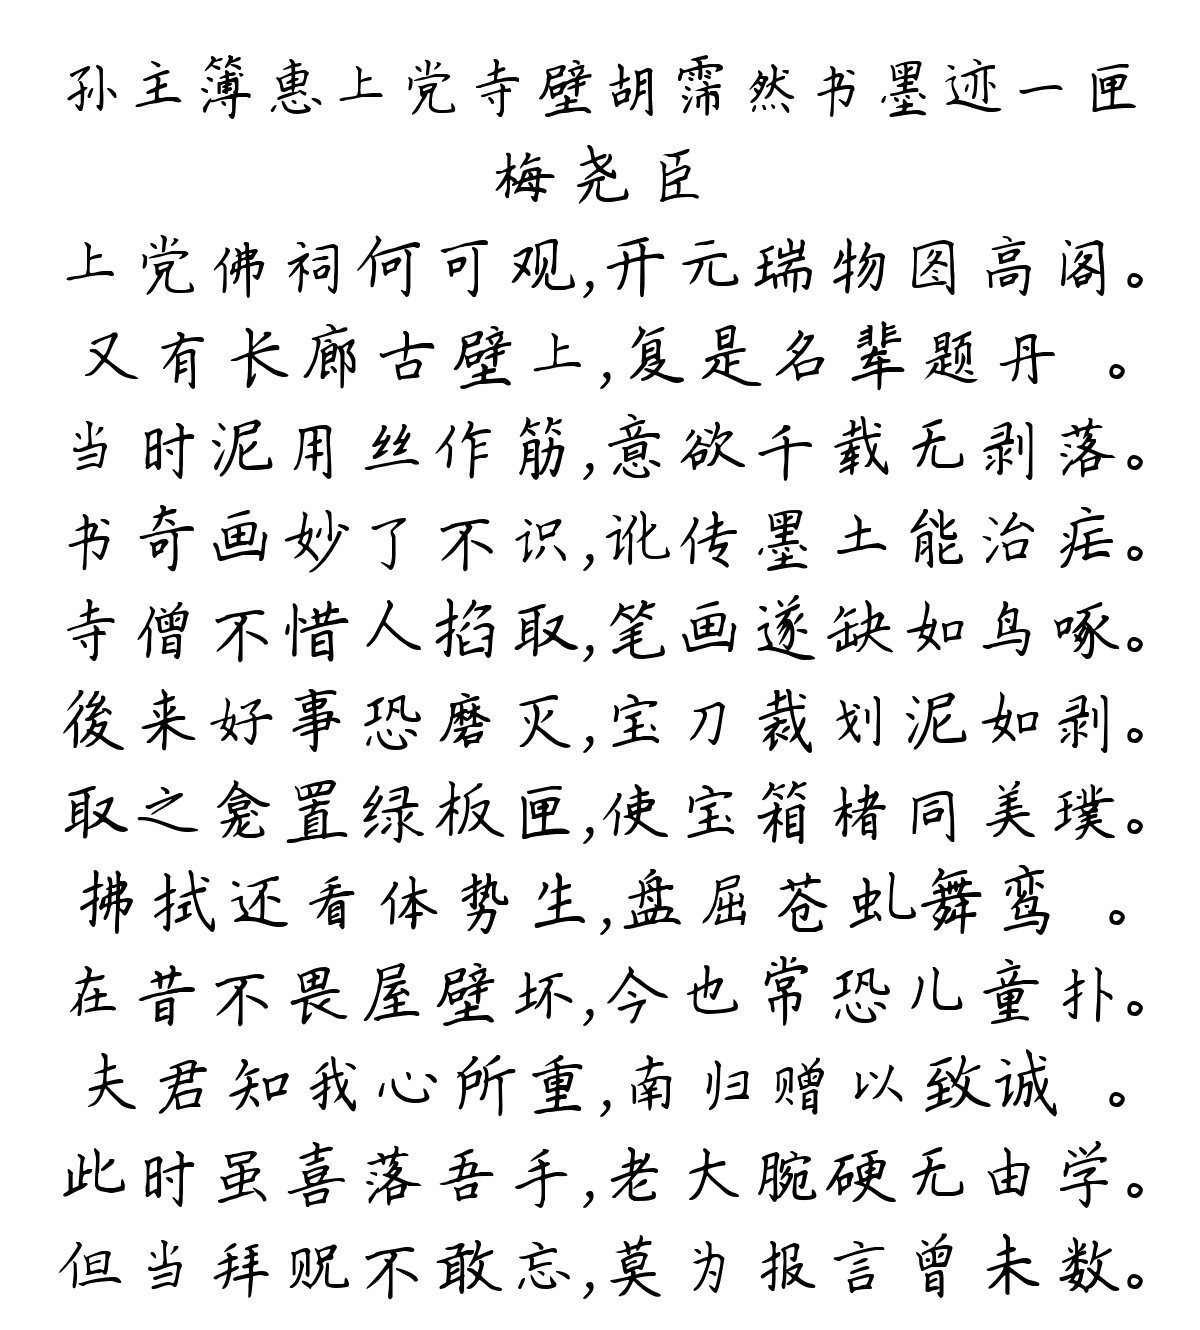 孙主簿惠上党寺壁胡霈然书墨迹一匣
梅尧臣
上党佛祠何可观,开元瑞物图高阁。
又有长廊古壁上,复是名辈题丹 。
当时泥用丝作筋,意欲千载无剥落。
书奇画妙了不识,讹传墨土能治疟。
寺僧不惜人掐取,笔画遂缺如鸟啄。
後来好事恐磨灭,宝刀裁划泥如剥。
取之龛置绿板匣,使宝箱楮同美璞。
拂拭还看体势生,盘屈苍虬舞鸾 。
在昔不畏屋壁坏,今也常恐儿童扑。
夫君知我心所重,南归赠以致诚 。
此时虽喜落吾手,老大腕硬无由学。
但当拜贶不敢忘,莫为报言曾未数。